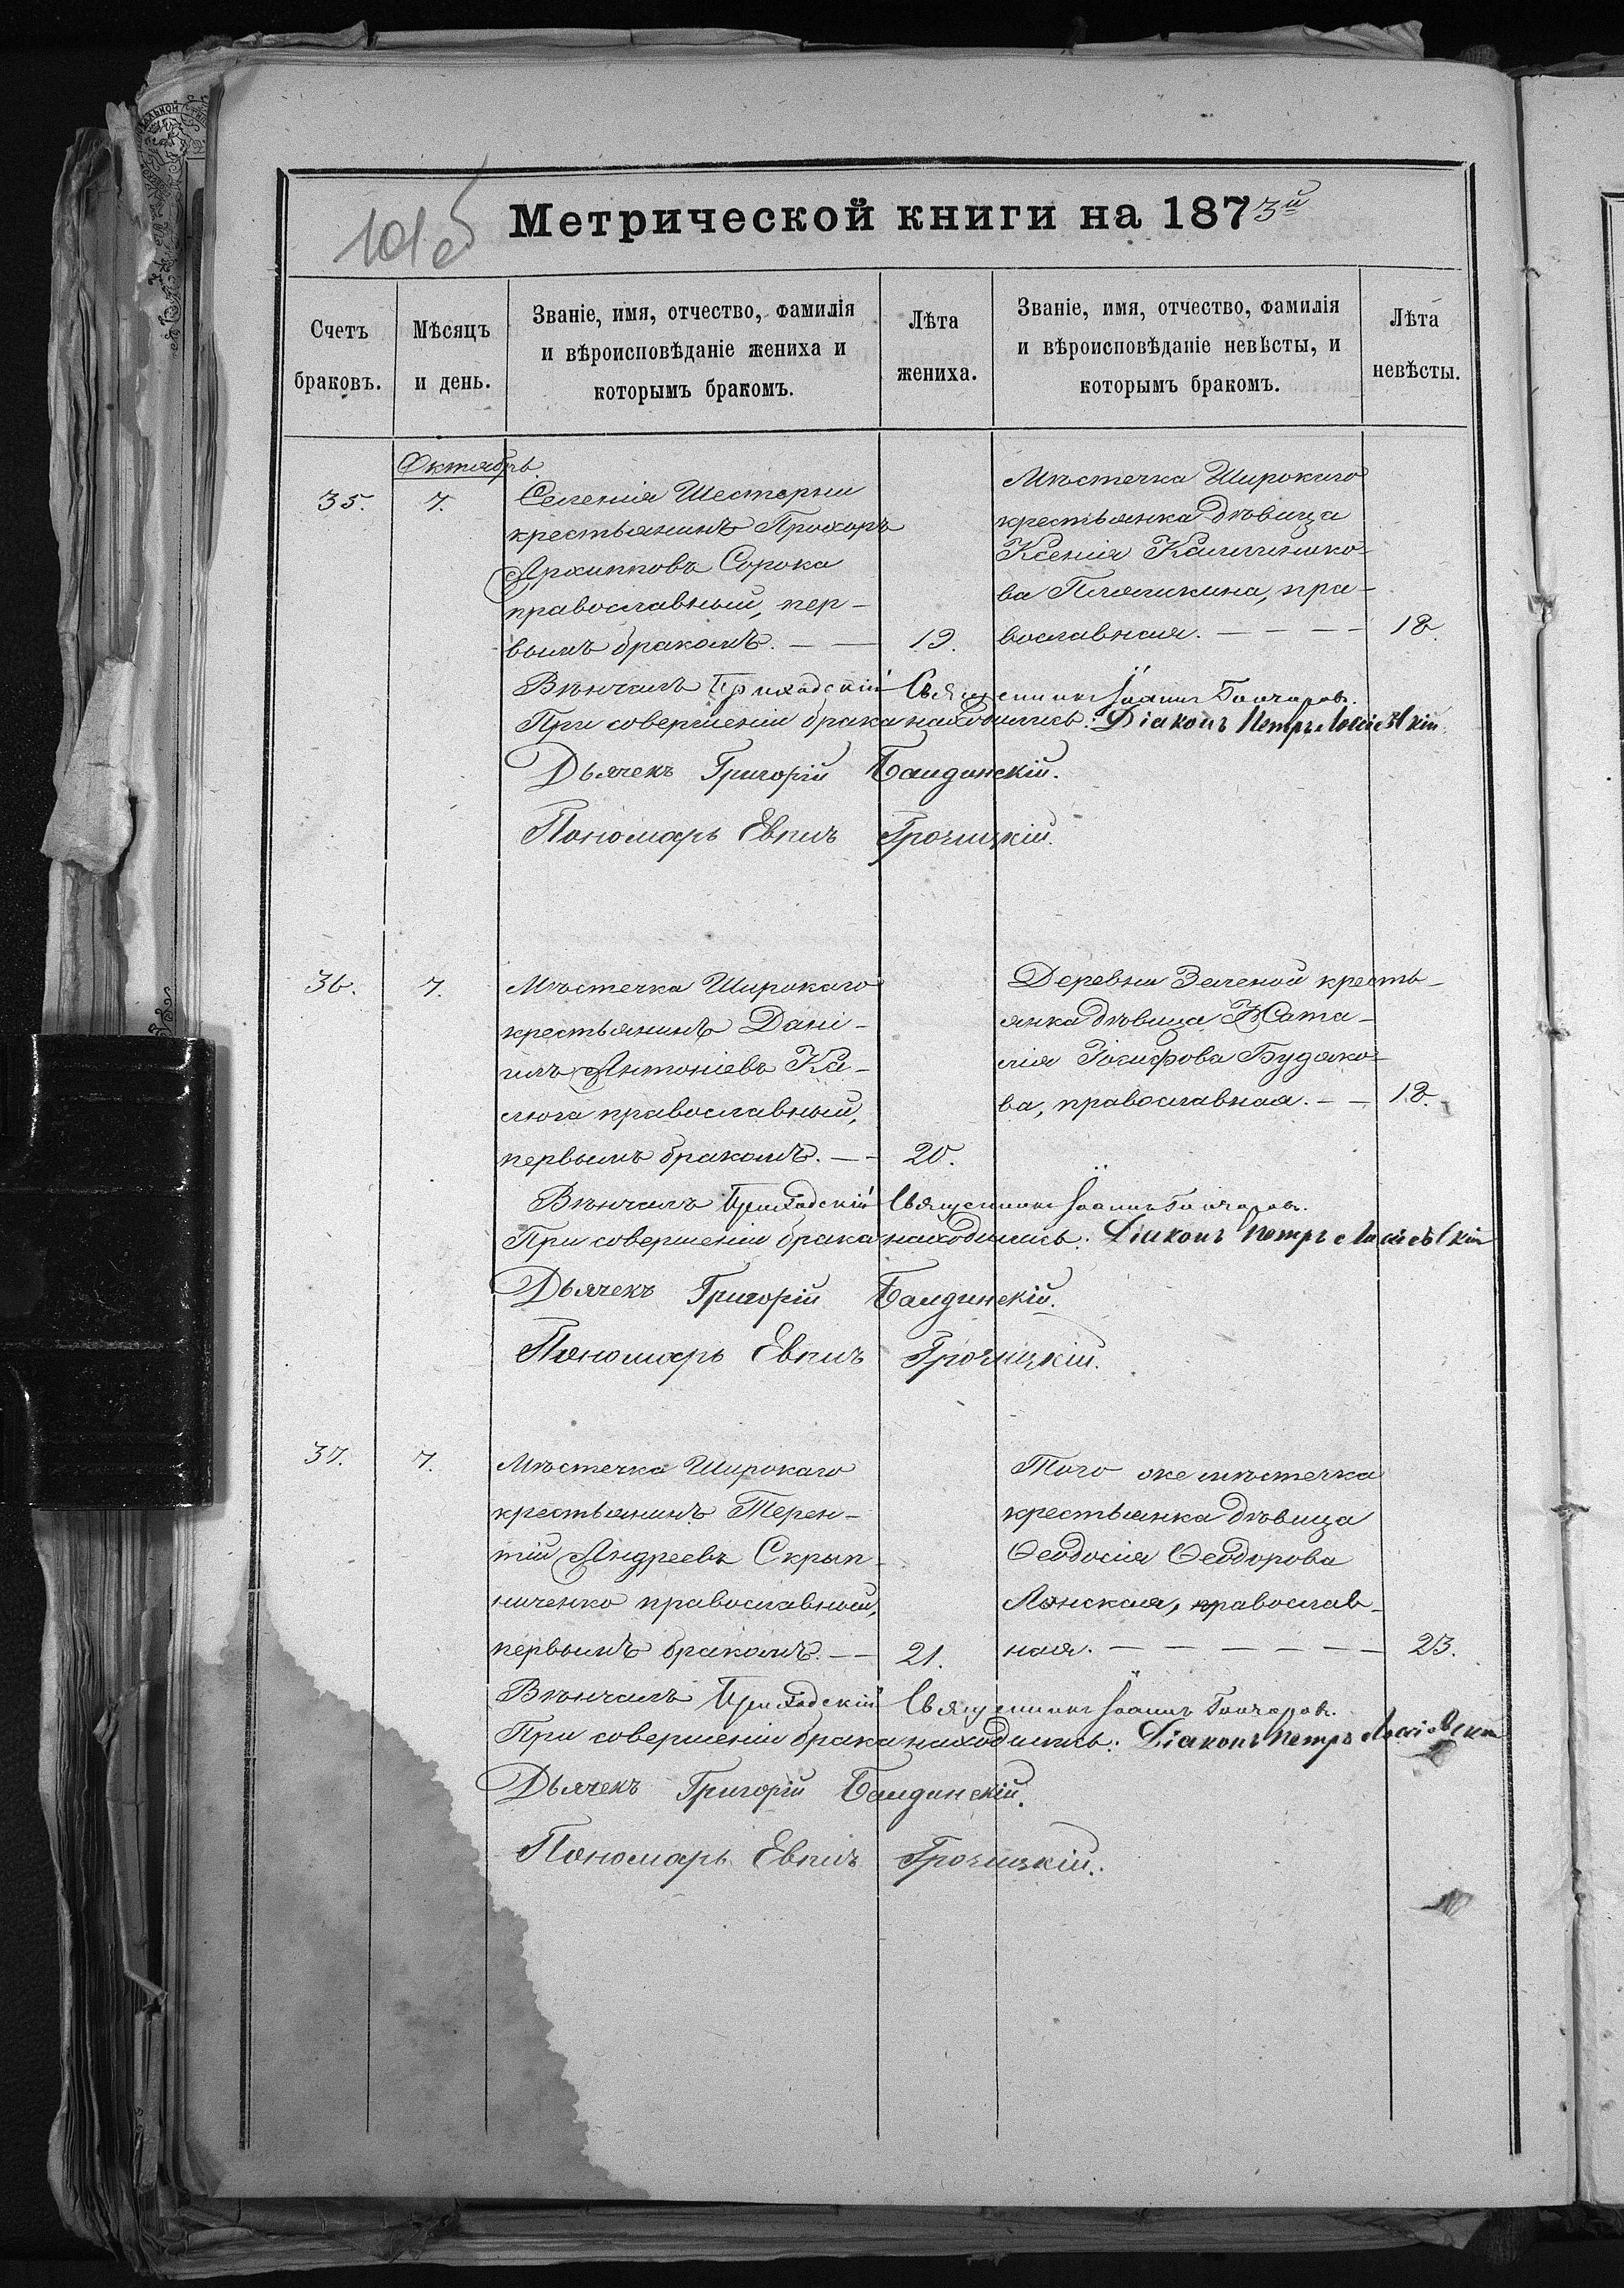 101 об
Метрической книги на 1873й
Счетъ браковъ.
Мѣсяцъ и день.
Званіе, имя, отчество, фамилія
и вѣроисповѣданіе жениха и
которымъ бракомъ.
Лѣта жениха.
Званіе, имя, отчество, фамилія
и вѣроисповѣданіе невѣсты, и
которымъ бракомъ.
Лѣта невѣсты.
Октябрь
35.
7.
Селенія Шестерни
крестьянинъ Прохоръ
Архипповъ Сорока
православный, пер-
вымъ бракомъ. — —
19.
Мѣстечка Широкаго
крестьянка дѣвица
Ксенія
православная. — — — —
18.
Вѣнчалъ Приходскій Священникъ Іоаннъ Гончаровъ.
При совершеніи брака находились: Діаконъ Петръ
Дьячекъ Григорій Балдинскій.
Пономарь Евгнъ
36.
7.
Мѣстечка Широкаго
крестьянинъ Дані-
илъ Антоніевъ Ка-
люга православный,
первымъ бракомъ. — -
20.
Деревни Зеленой кресть-
янка дѣвица Ната-
лія Іосифова Будако-
ва, православная. — —
18.
Вѣнчалъ Приходскій Священникъ Іоаннъ Гончаровъ.
При совершеніи брака находились: Діаконъ Петръ
Дьячекъ Григорій Балдинскій.
Пономарь
37.
7.
Мѣстечка Широкаго
крестьянинъ Терен-
тій Андреевъ Скрып-
ниченко православный,
первымъ бракомъ. — —
21.
Того же мѣстечка
крестьянка дѣвица
Ѳеодосія Ѳеодорова
Лянская, православ-
ная. — — — — — —
23.
Вѣнчалъ Приходскій Священникъ Іоаннъ Гончаровъ.
При совершеніи брака находились: Діаконъ Петръ
Дьячекъ Григорій Балдинскій.
Пономарь